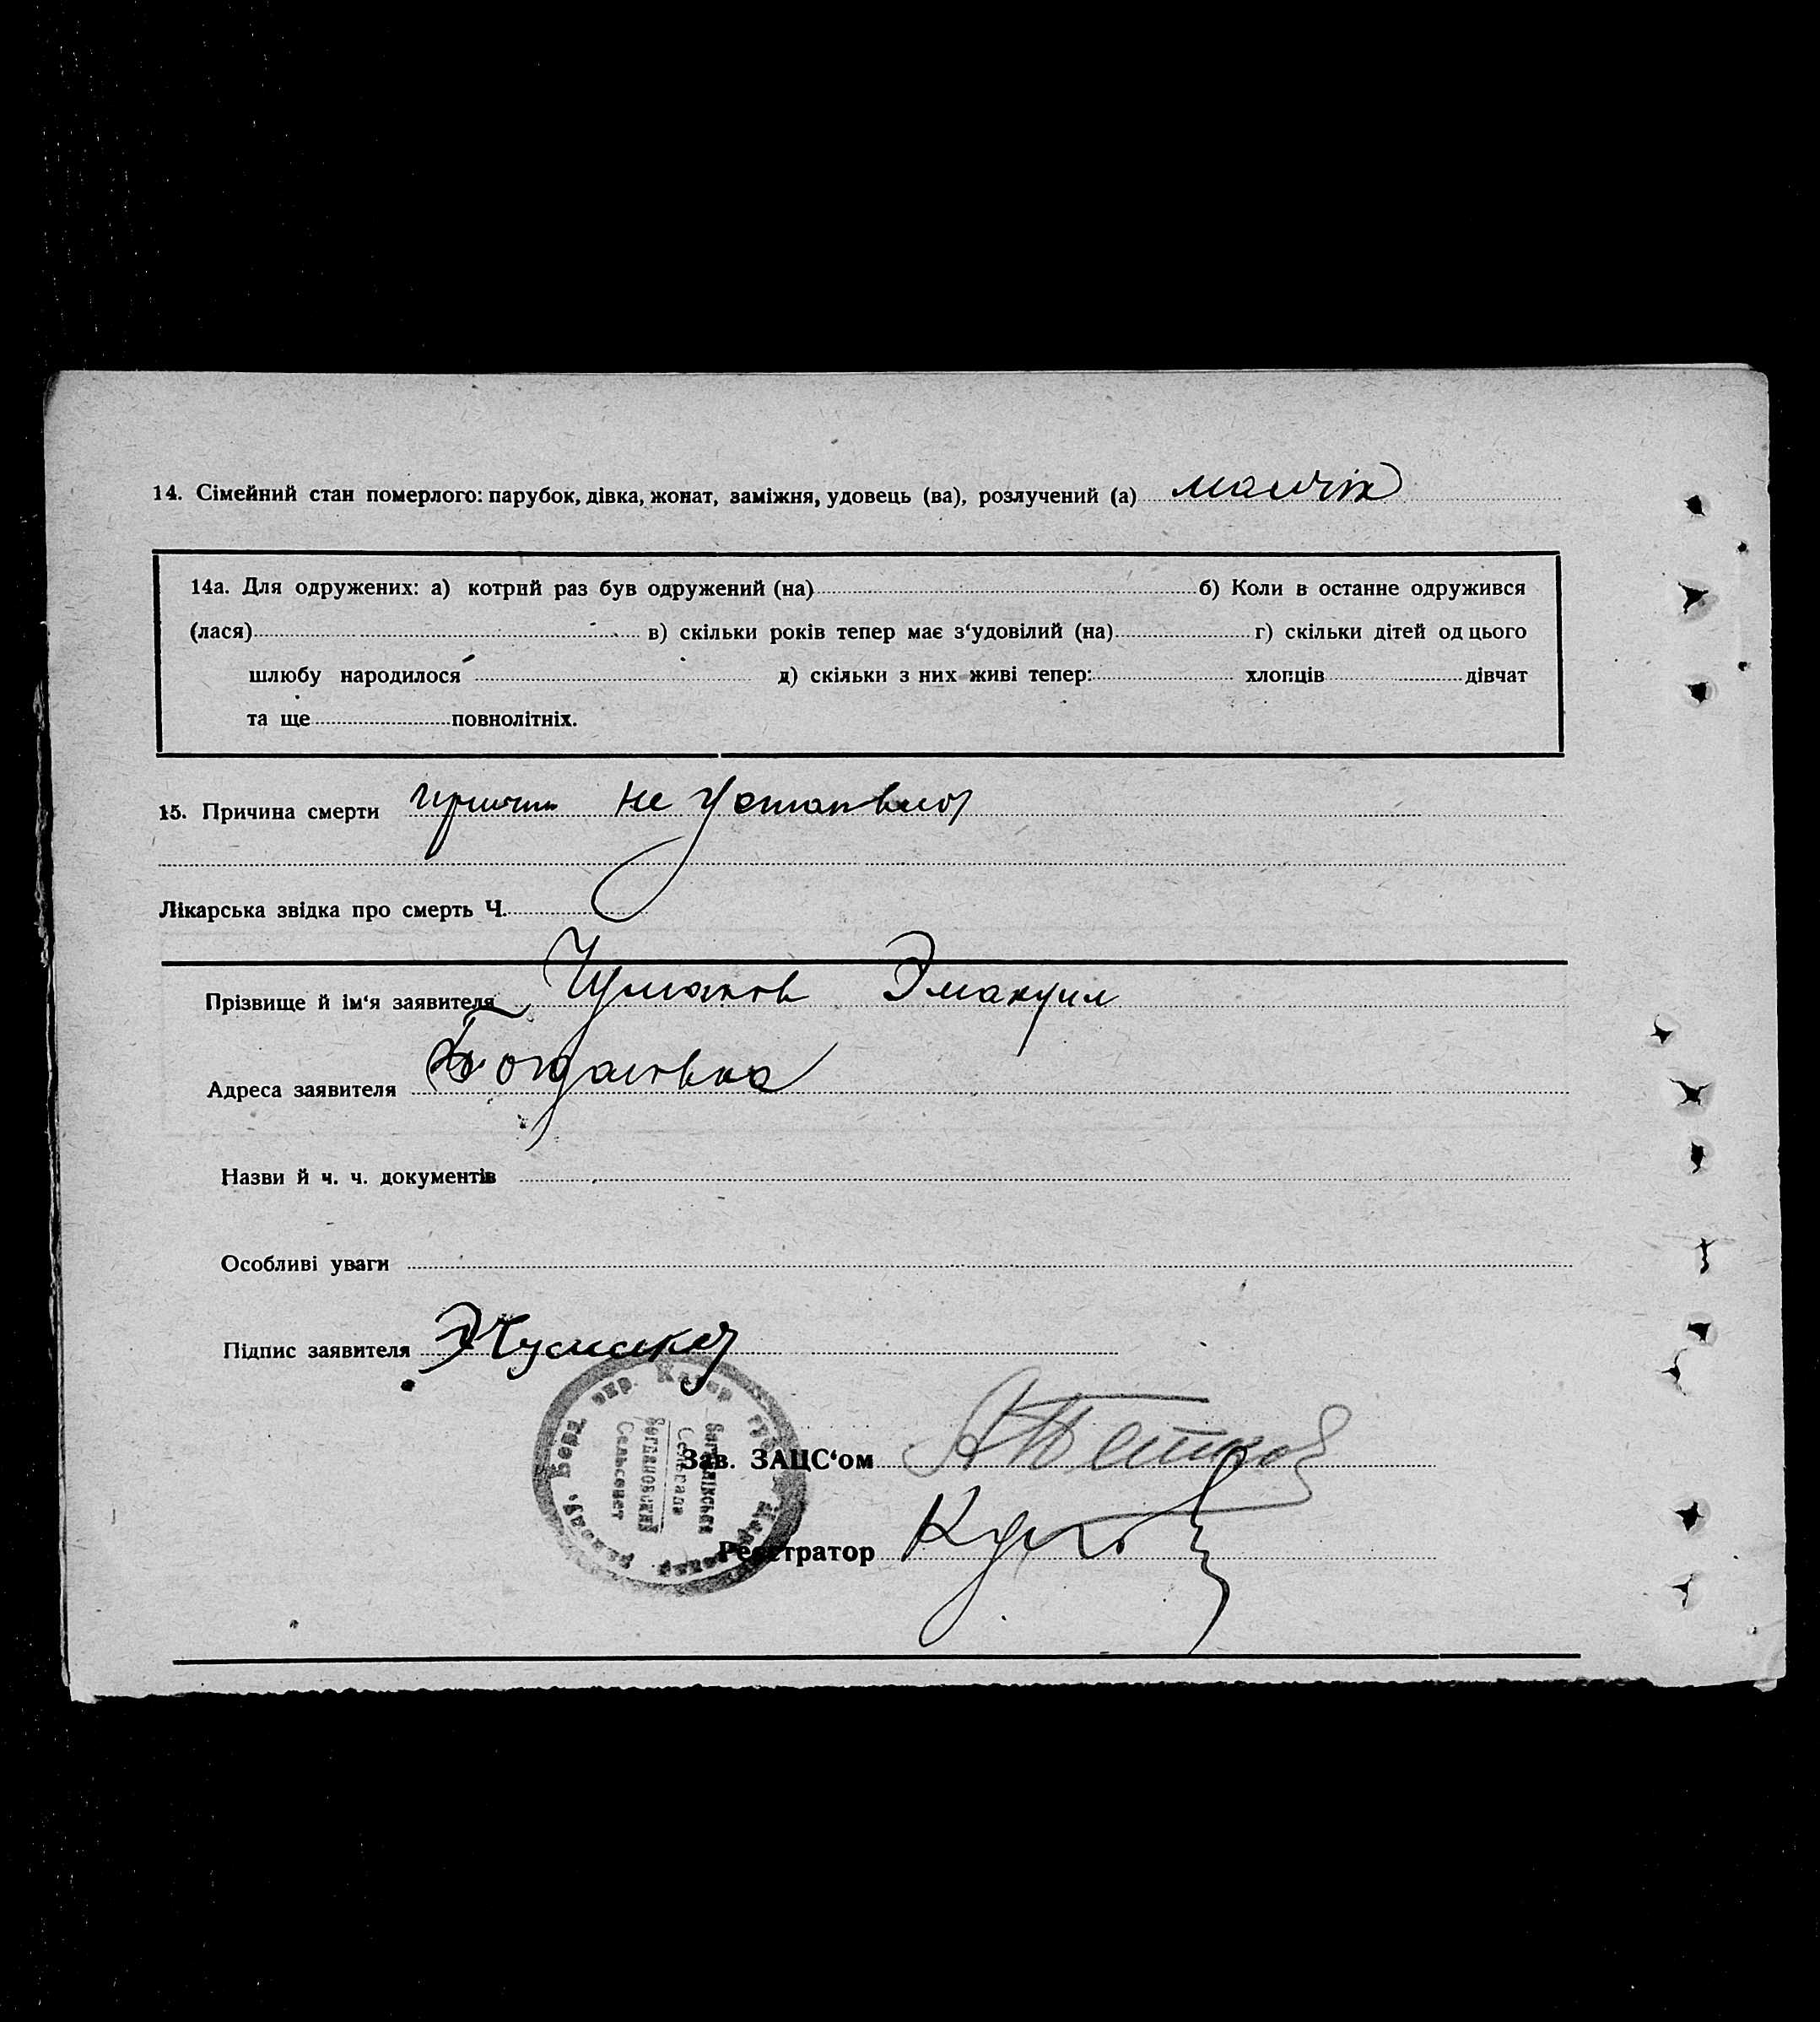 14. Сімейний стан померлого: парубок, дівка, жонат, заміжня, удовець (ва), розлучений (а)
14а. Для одружених: а) котрий раз був одружений (на) б) Коли в останне одружився
(лася) в) скільки років тепер має з‘удовілий (на) г) скільки дітей од цього
шлюбу народилося д) скільки з них живі тепер: хлопців дівчат
та ще повнолітніх.
15. Причина смерти не
Лікарська звідка про смерть Ч.
Прізвище й ім‘я заявителя Чумаков Эмануил
Адреса заявителя Богдановка
Назви й ч. ч. документів
Особливі уваги
Підпис заявителя
Богданівська
Сельрада
Богдановский
Сельсовет
Зав. ЗАЦС‘ом
Реєстратор